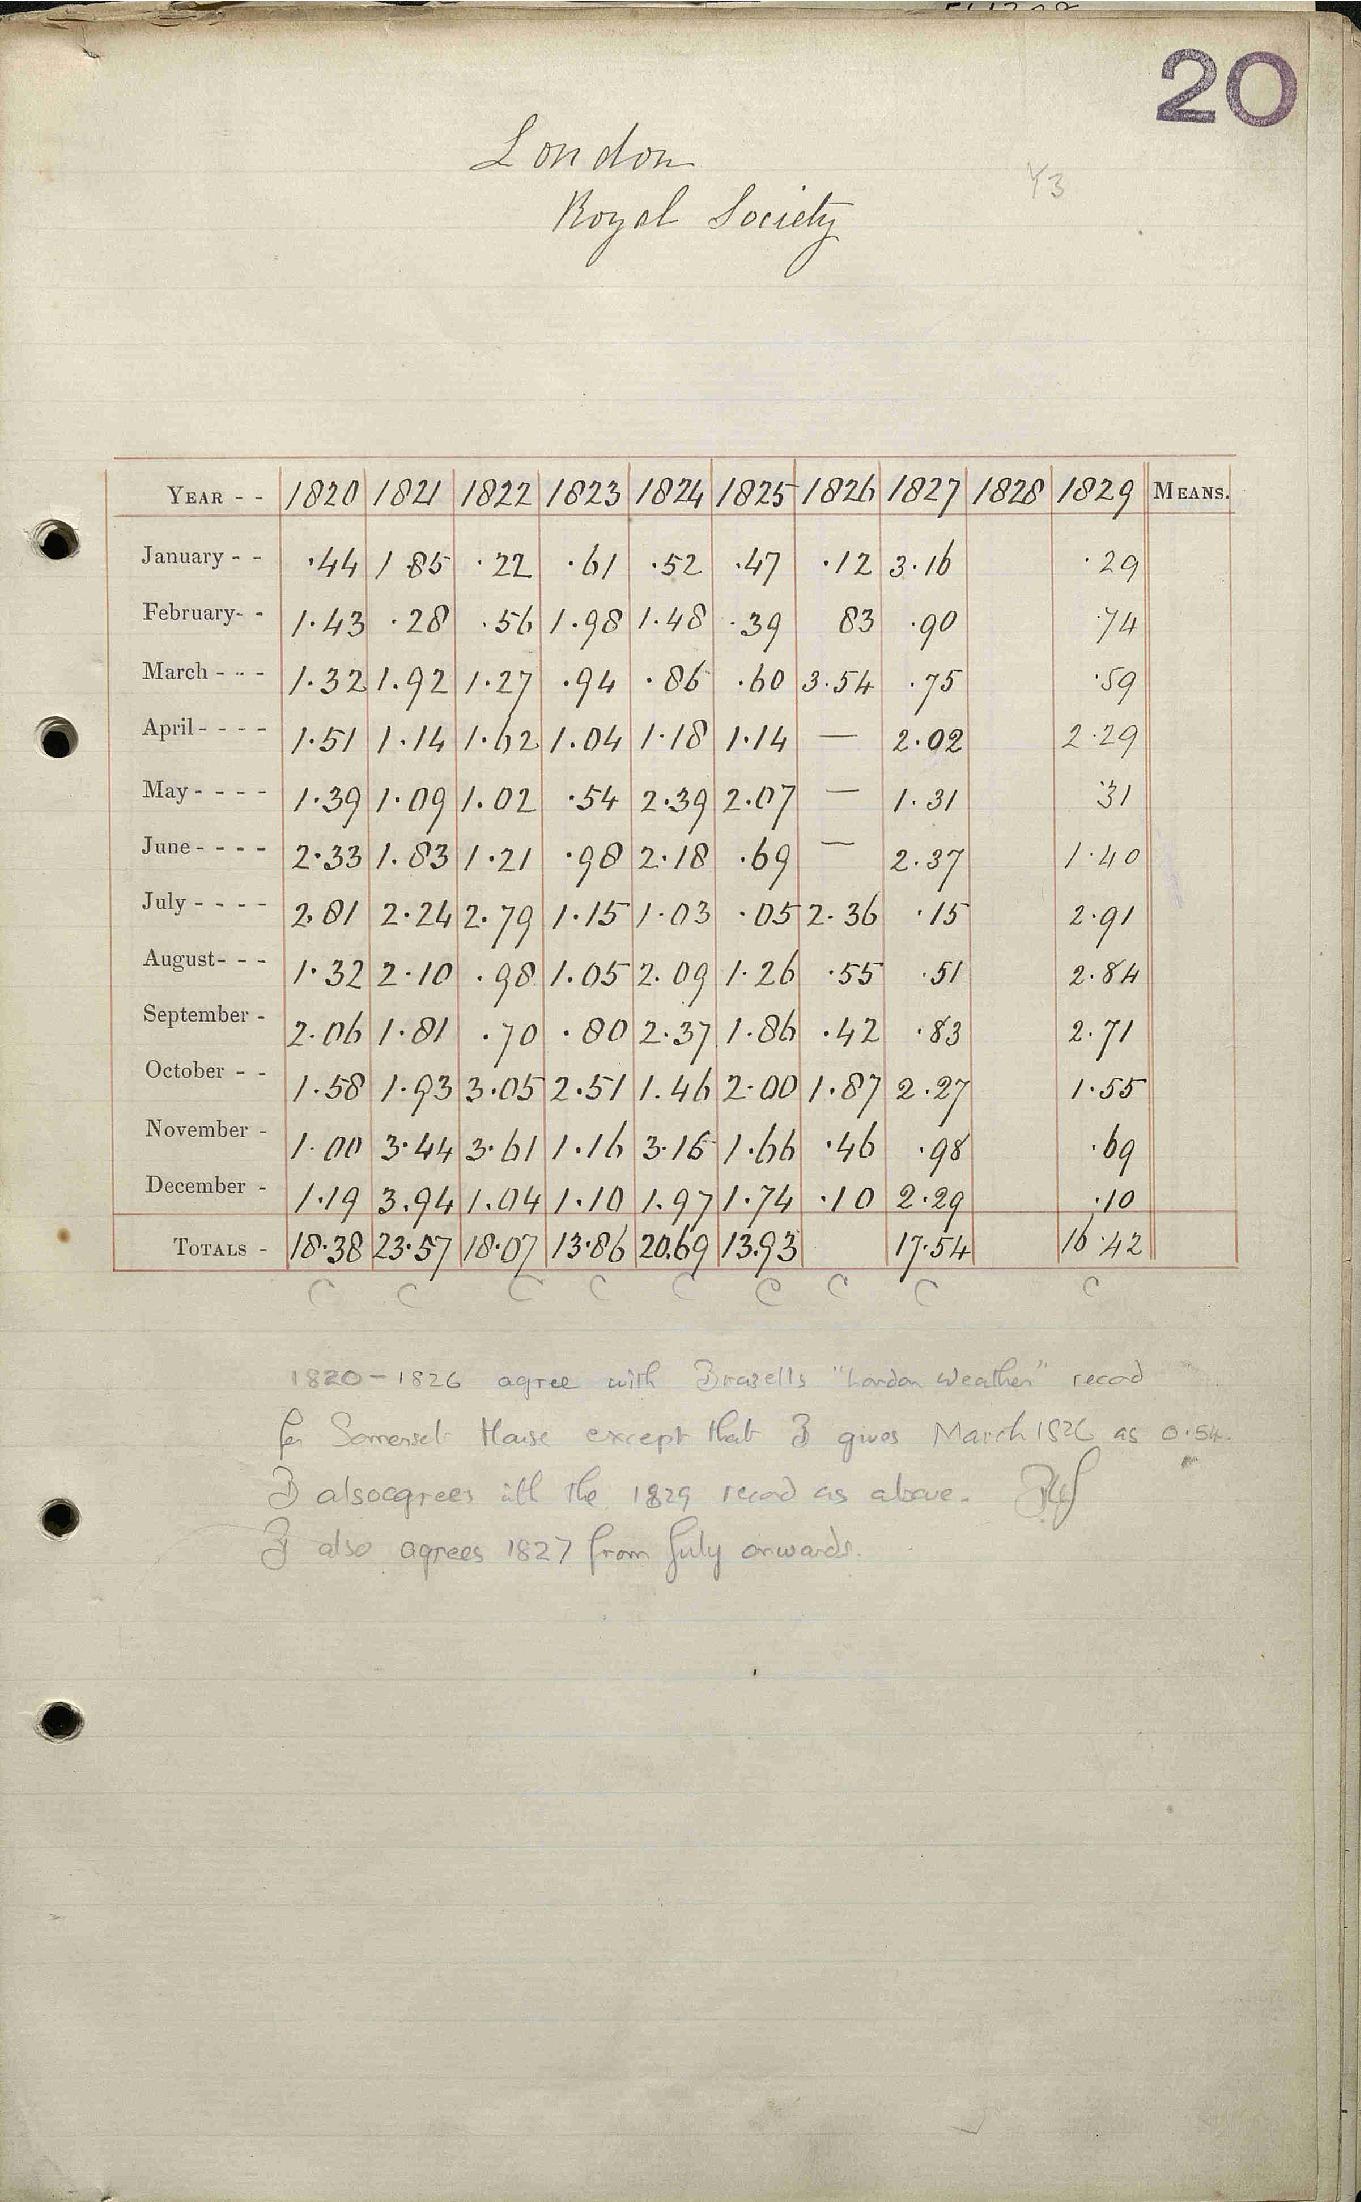 20
London
Y3
Royal Society
YEAR - - 1820 1821 1822 1823 1824 1825 1826 1827 1828 1829 MEANS.
January - - ·44 1·85 ·22 ·61 ·52 ·47 ·12 3·16 ·29
February- - 1·43 ·28 ·56 1·98 1·48 ·39 83 ·90 ·74
March - - - 1·32 1.92 1·27 ·94 ·86 ·60 3·54 ·75 ·59
April - - - - 1·51 1·14 1·62 1·04 1·18 1·14 — 2·02 2·29
May - - - - 1·39 1·09 1·02 ·54 2·39 2·07 — 1·31 ·31
June - - - - 2·33 1.83 1·21 ·98 2·18 ·69 — 2·37 1·40
July - - - - 2·81 2·24 2·79 1·15 1·03 ·05 2·36 ·15 2·91
August- - - 1·32 2·10 ·98 1·05 2·09 1·26 ·55 ·51 2·84
September - 2·06 1·81 ·70 ·80 2·37 1·86 ·42 ·83 2·71
October - - 1·58 1·93 3·05 2·51 1.46 2·00 1·87 2·27 1·55
November - 1·00 3·44 3·61 1·16 3·16 1·66 ·46 ·98 ·69
December - 1·19 3.94 1.04 1·10 1.97 1·74 ·10 2·29 ·10
TOTALS - 18·38 23·57 18·07 13·86 20.69 13.93 17·54 16·42
C C C C C C C C C
1820-1826 agree with Brazells "London Weather" record
for Somerset House except that B gives March 1826 as 0·54.
B also agrees with the 1829 record as above.
B also agrees 1827 from July onwards.